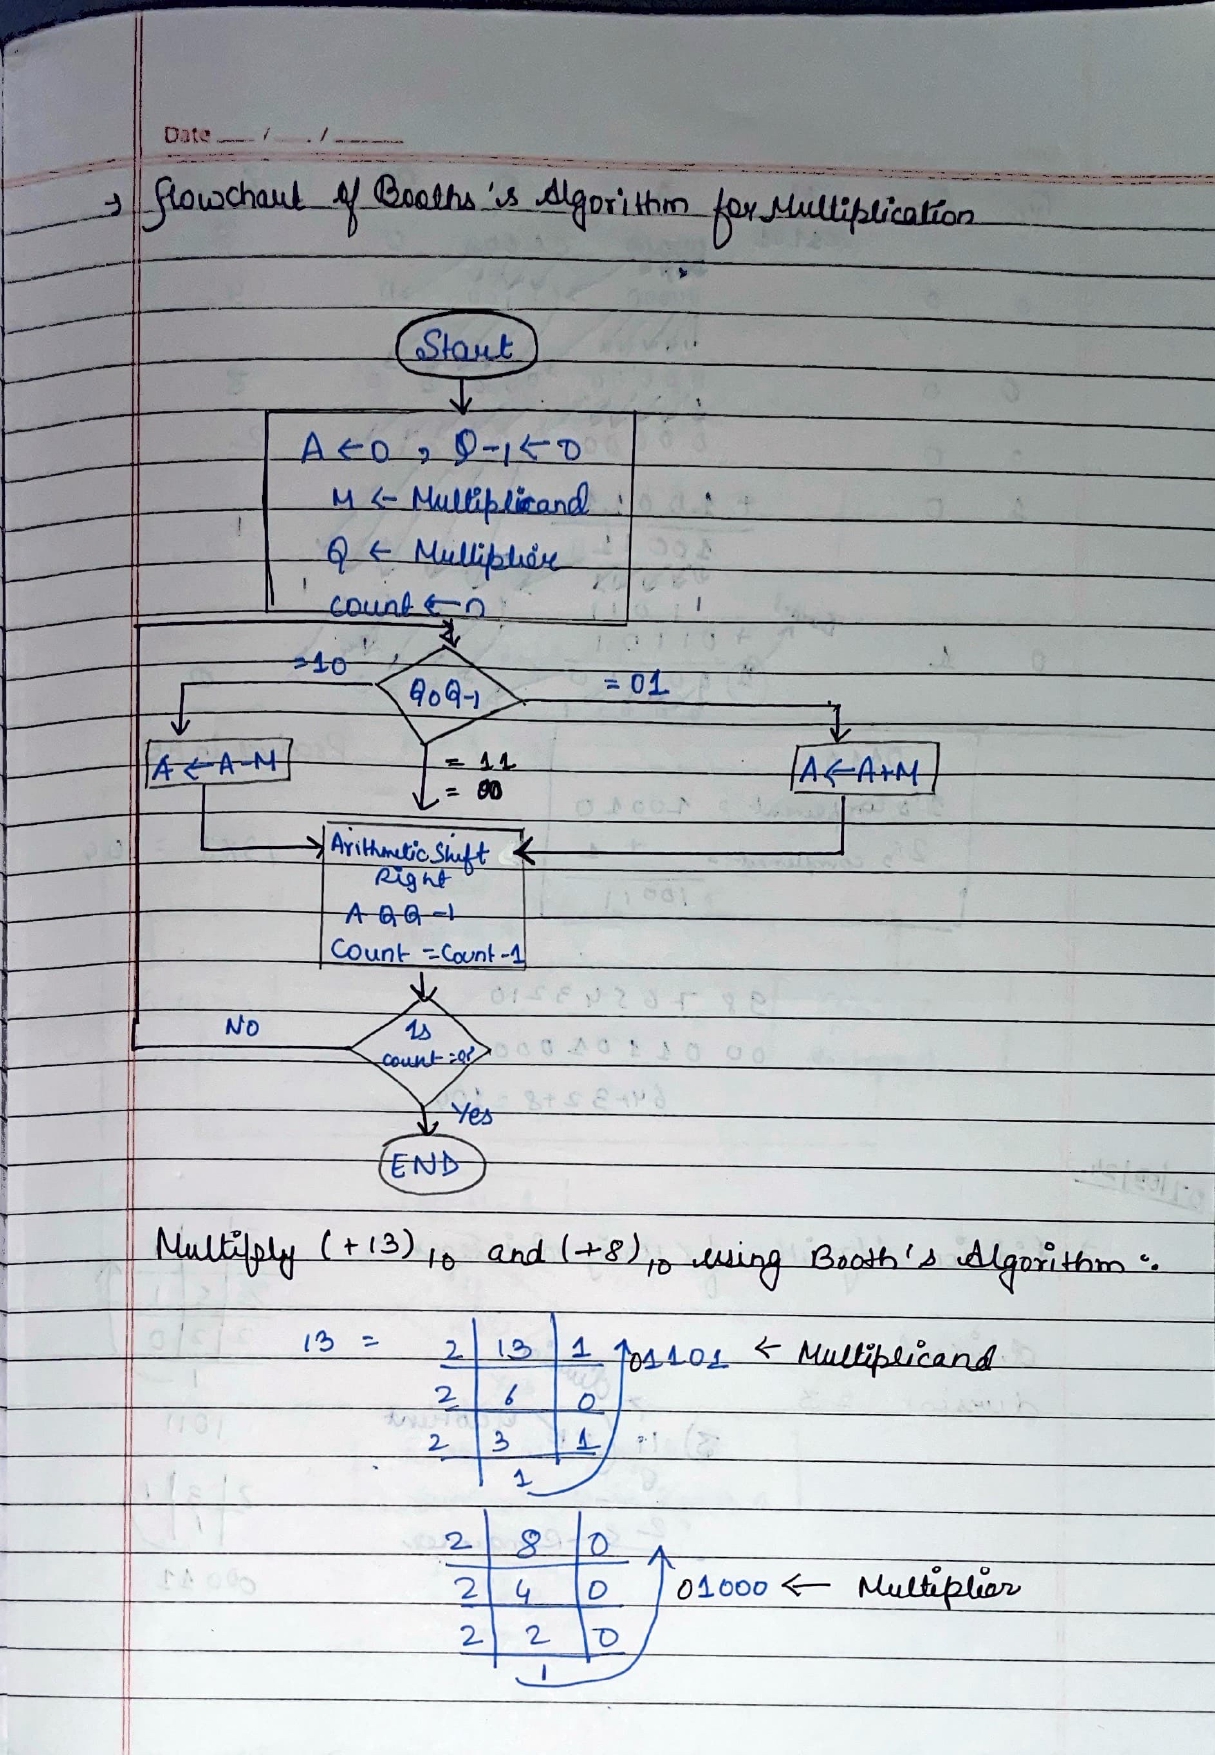 Date __/__./____
→ flowchart of Booths's Algorithm for Multiplication
Start
A ← 0, Q-1 ← 0
M ← Multiplicand
Q ← Multiplier
count ← n
=10
Q0Q-1
= 01
A ← A-M
= 11
= 00
A ← A+M
Arithmetic Shift
Right
A Q Q-1
Count = Count-1
NO
Is
count =0?
Yes
END
Multiply (+13)10 and (+8)10 using Booth's Algorithm:
13 = 2 13 1 01101 ← Multiplicand
2 6 0
2 3 1
1
2 8 0
2 4 0 01000 ← Multiplier
2 2 0
1